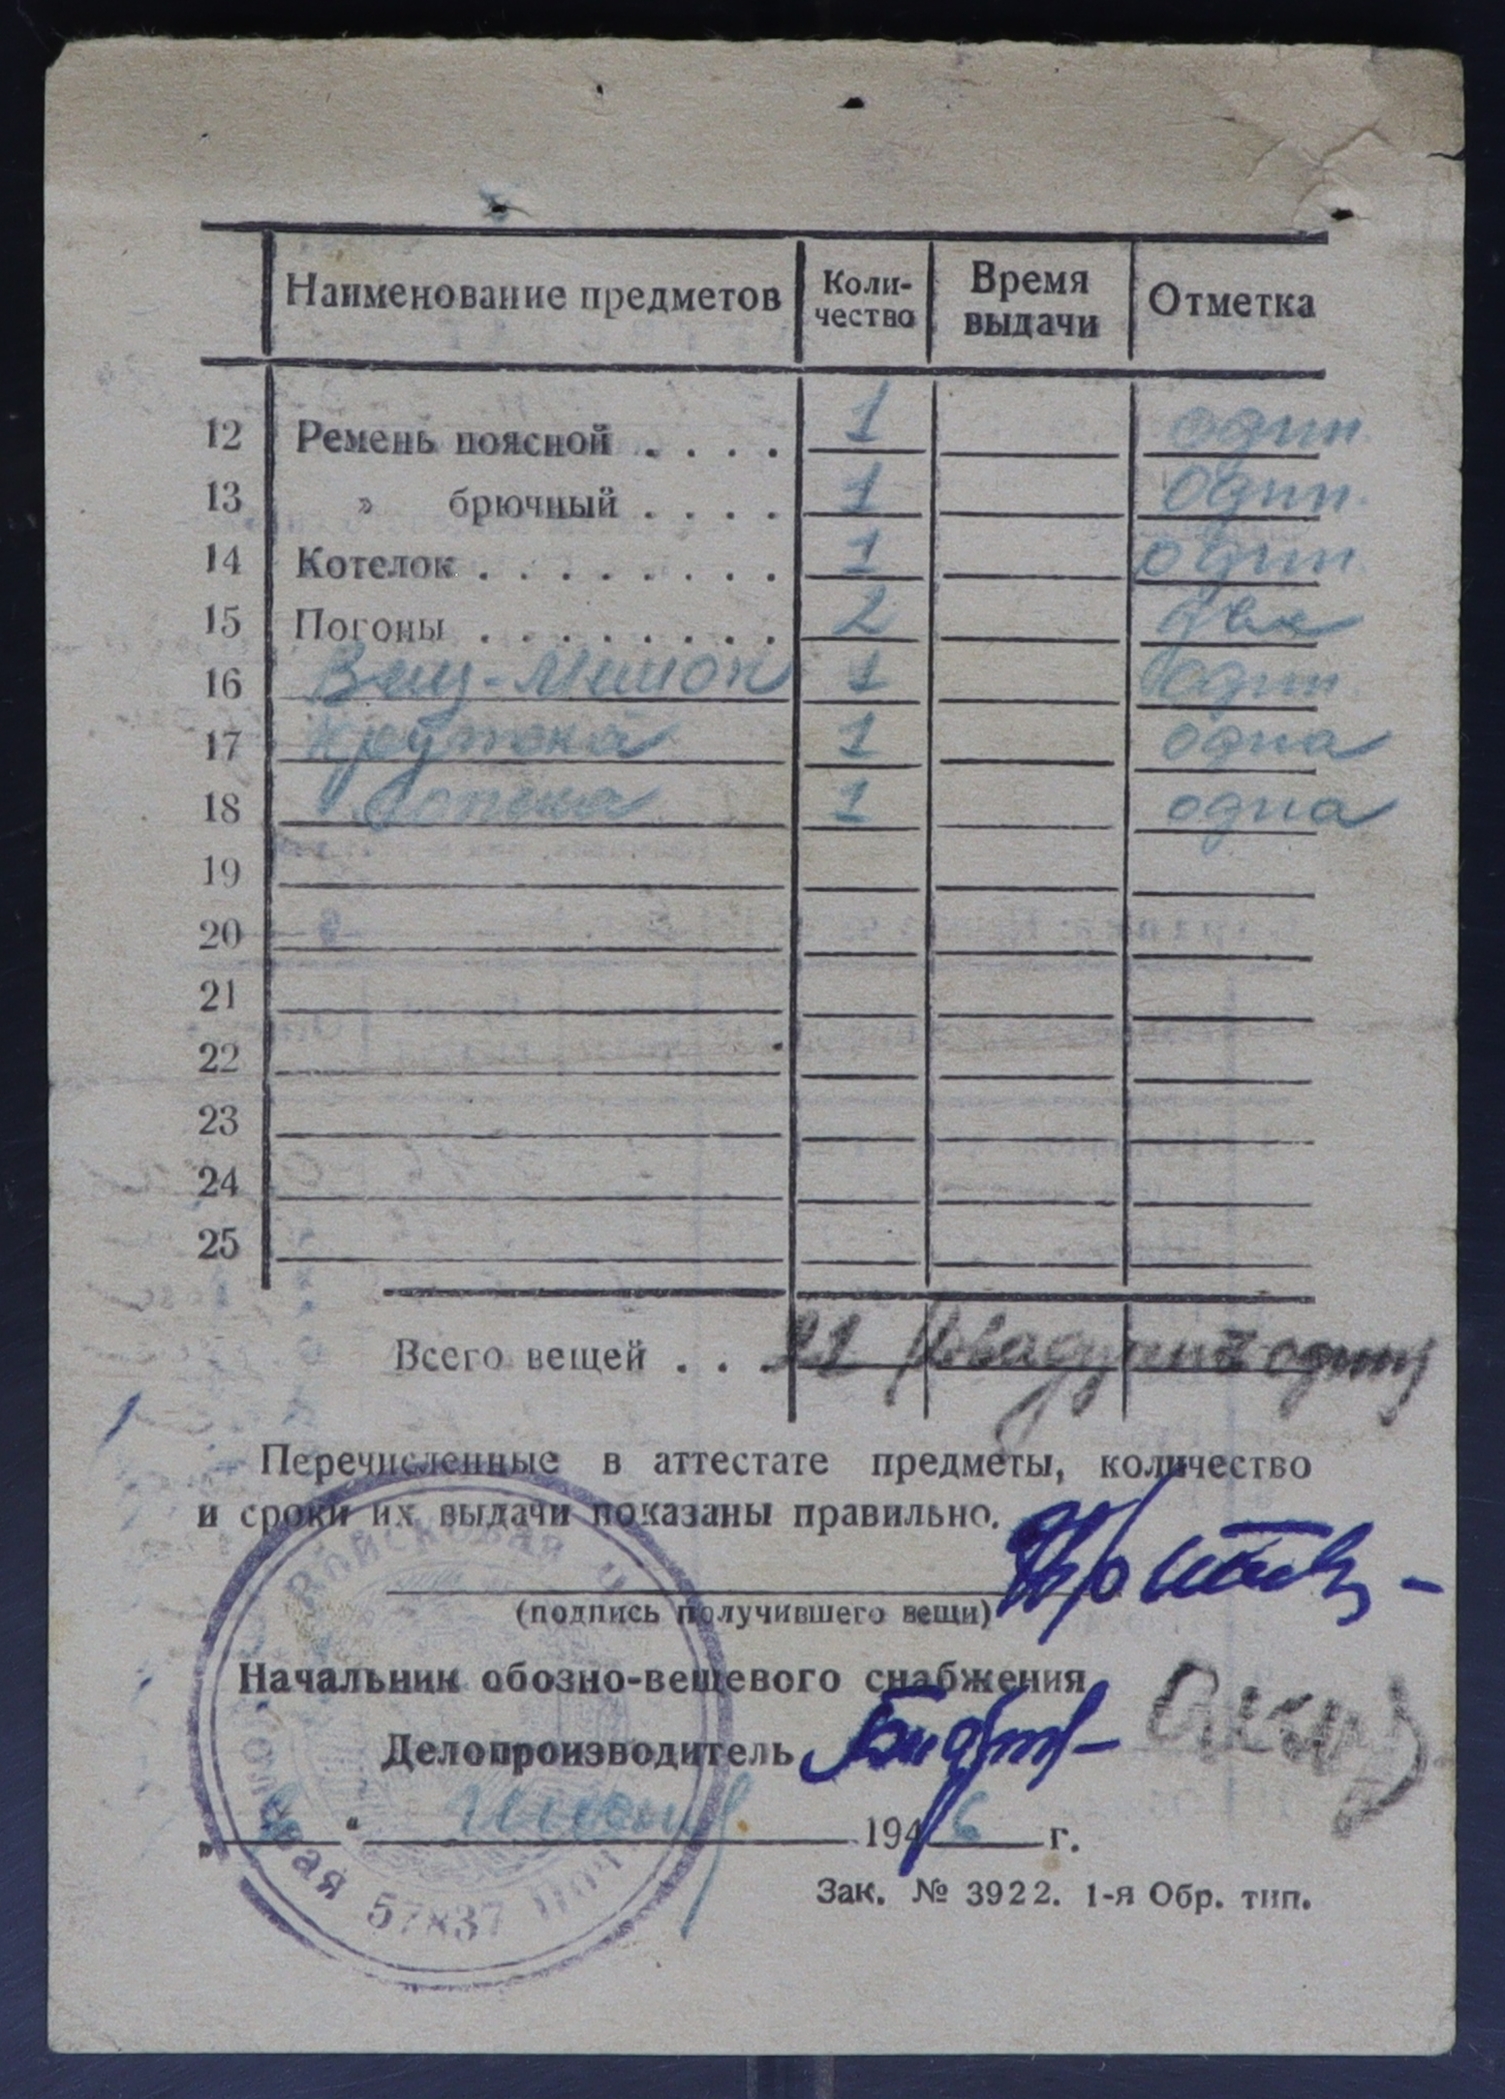 Наименование предметов Коли- Время Отметка
чество выдачи
12 Ремень поясной . . . . 1 один
13 » брючный . . . . 1 один
14 Котелок . . . . . . . . 1 один
15 Погоны . . . . . . . . 2 два
16 Вещ-Мешок 1 один
17 Куртка 1 одна
18 1 одна
19
20
21
22
23
24
25
Всего вещей . . . 21 (двадцать один)
Перечисленные в аттестате предметы, количество
и сроки их выдачи показаны правильно.
(подпись получившего вещи)
Начальник обозно-вещевого снабжения
Делопроизводитель
„ “ 1946 г.
Войсковая
57837
Зак. № 3922. 1-я Обр. тип.